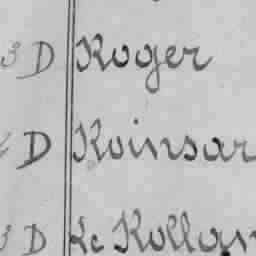 3 D Roger
D Roinsar
3 D Le Rollan